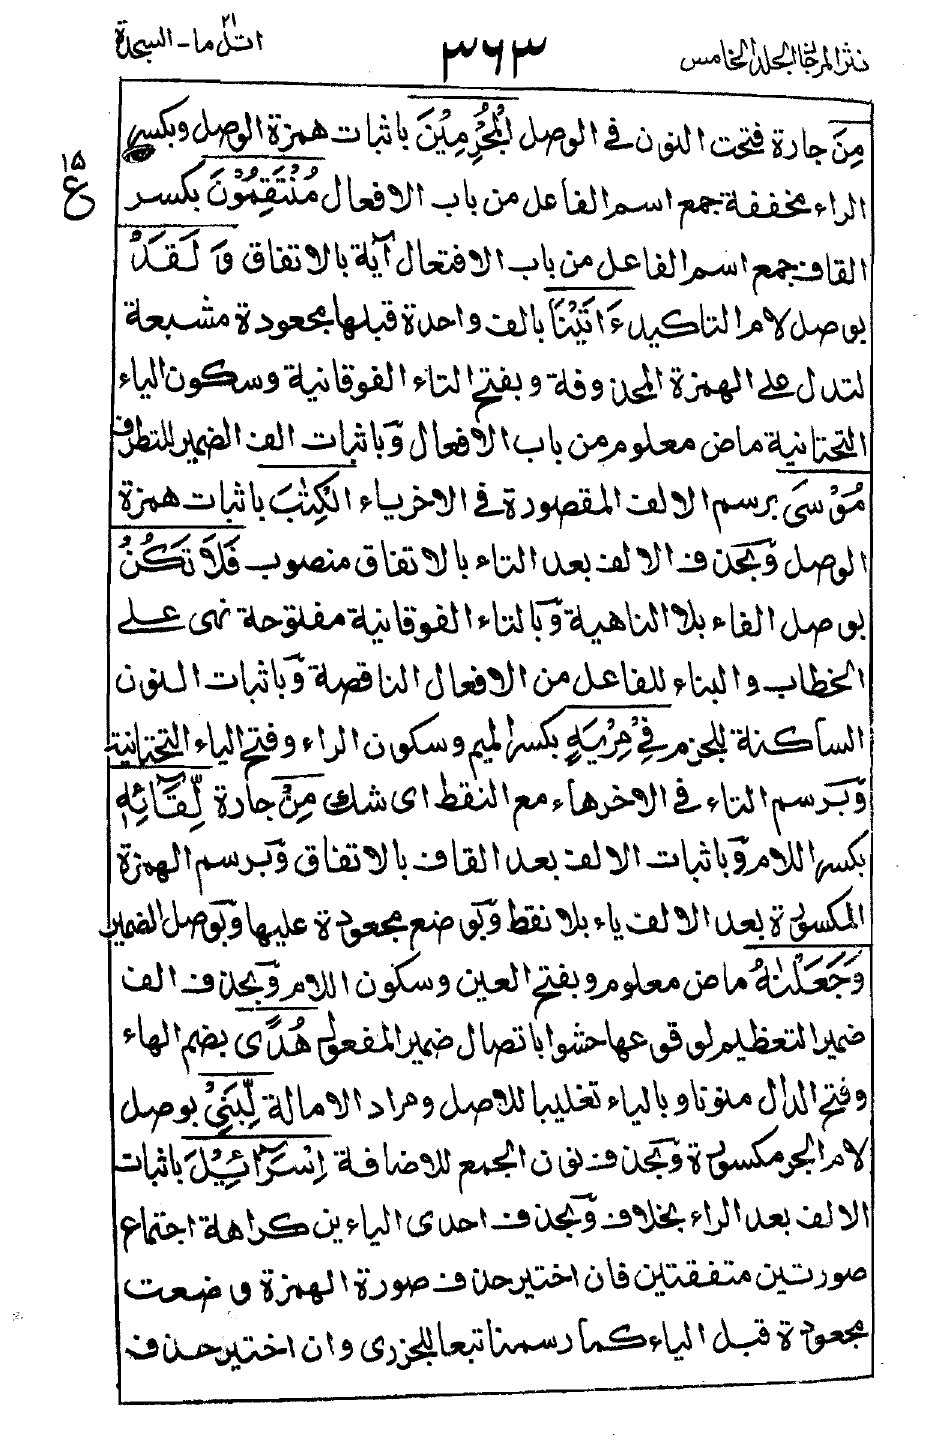 نثر المرجان الجلد الخامس
٣٦٣
اتل ما - السجدة
٢١
مِنَ جارة فتحت النون فى الوصل الْمُجْرِمِيْنَ باثبات همزة الوصل وبكسر
١٥
ع
الراء مخففة جمع اسم الفاعل من باب الافعال مُنْتَقِمُوْنَ بكسر
القاف جمع اسم الفاعل من باب الافتعال آية بالاتفاق وَ لَقَدْ
بوصل لام التاكيد ءَاتَيْنَا بالف واحدة قبلها مجعودة مشبعة
لتدل على الهمزة المحذوفة و بفتح التاء الفوقانية وسكون الياء
التحتانية ماض معلوم من باب الافعال وَباثبات الف الضمير للتطرف
مُوْسَى برسم الالف المقصورة فى الاخر ياء الْكِتٰبَ باثبات همزة
الوصل وَبحذف الالف بعد التاء بالاتفاق منصوب فَلَا تَكُنْ
بوصل الفاء بلا الناهية وَبالتاء الفوقانية مفتوحة نهى على
الخطاب والبناء للفاعل من الافعال الناقصة وَباثبات النون
الساكنة للجزم فِيْ مِرْيَةٍ بكسر الميم وسكون الراء وفتح الياء التحتانية
وَبرسم التاء فى الاخر هاء مع النقط اى شك مِنْ جارة لِّقَآئِهٖ
بكسر اللام وَباثبات الالف بعد القاف بالاتفاق وَبرسم الهمزة
المكسورة بعد الالف ياء بلا نقط وَبوضع مجعودة عليها وَبوصل الضمير
وَجَعَلْنٰهُ ماض معلوم وبفتح العين وسكون اللام وَبحذف الف
ضمير التعظيم لوقوعها حشوا باتصال ضمير المفعول هُدًى بضم الهاء
وفتح الدال منونا وبالياء تغليبا للاصل ومراد الامالة لِّبَنِيْ بوصل
لام الجر مكسورة وَبحذف نون الجمع للاضافة اِسْرَآئِيْلَ باثبات
الالف بعد الراء بخلاف وَبحذف احدى الياءين كراهة اجتماع
صورتين متفقتين فان اختير حذف صورة الهمزة وضعت
مجعودة قبل الياء كما رسمنا تبعا للجزرى وان اختير حذف